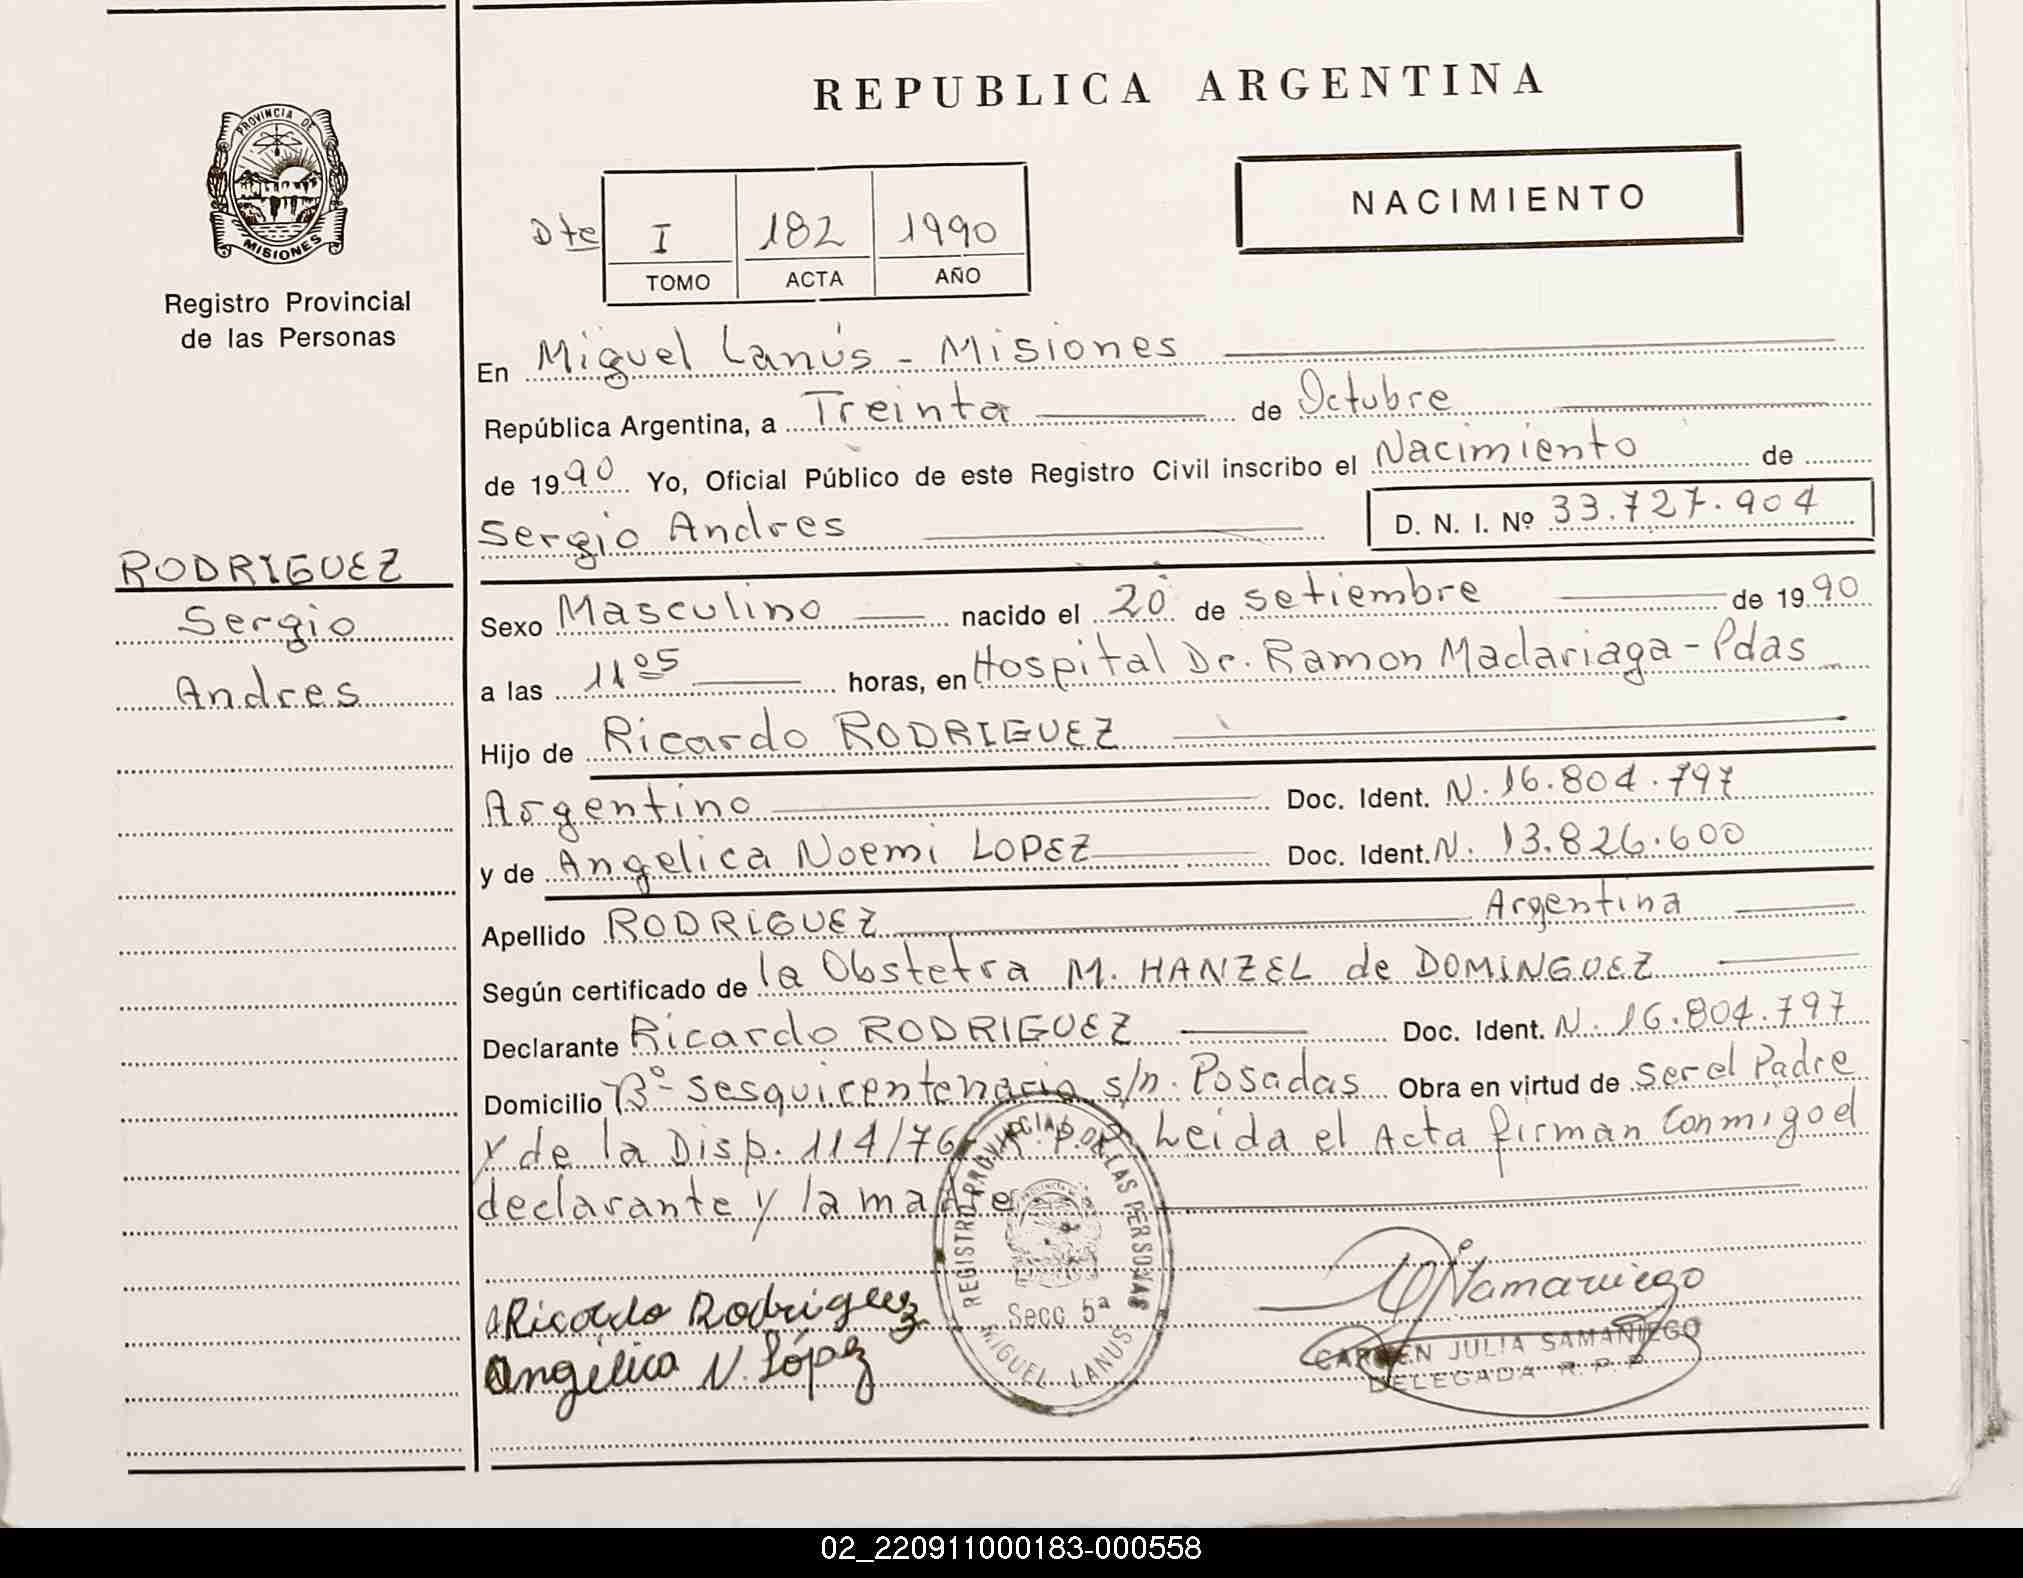 REPUBLICA ARGENTINA
PROVINCIA DE
MISIONES
Registro Provincial
de las Personas
NACIMIENTO
Dte I 182 1990
TOMO ACTA AÑO
En Miguel Lanús - Misiones
República Argentina, a Treinta de Octubre
de 1990 Yo, Oficial Público de este Registro Civil inscribo el Nacimiento de
Sergio Andres D. N. I. Nº 33.727.904
RODRIGUEZ
Sergio
Andres
Sexo Masculino nacido el 20 de setiembre de 1990
a las 11 05 horas, en Hospital Dr. Ramon Madariaga - Pdas
Hijo de Ricardo RODRIGUEZ
Argentino Doc. Ident. N. 16.804.797
y de Angelica Noemi LOPEZ Doc. Ident. N. 13.826.600
Argentina
Apellido RODRIGUEZ
Según certificado de la Obstetra M. HANZEL de DOMINGUEZ
Declarante Ricardo RODRIGUEZ Doc. Ident. N. 16.804.797
Domicilio Bº Sesquicentenario s/n. Posadas Obra en virtud de ser el Padre
y de la Disp. 114/76 R.P.P. Leida el Acta firman conmigo el
declarante y la madre
REGISTRO PROVINCIAL DE LAS PERSONAS
Secc 5ª
MIGUEL LANUS
Ricardo Rodriguez
Angélica N. López
Samaniego
CARMEN JULIA SAMANIEGO
DELEGADA R. P. P.
02_220911000183-000558